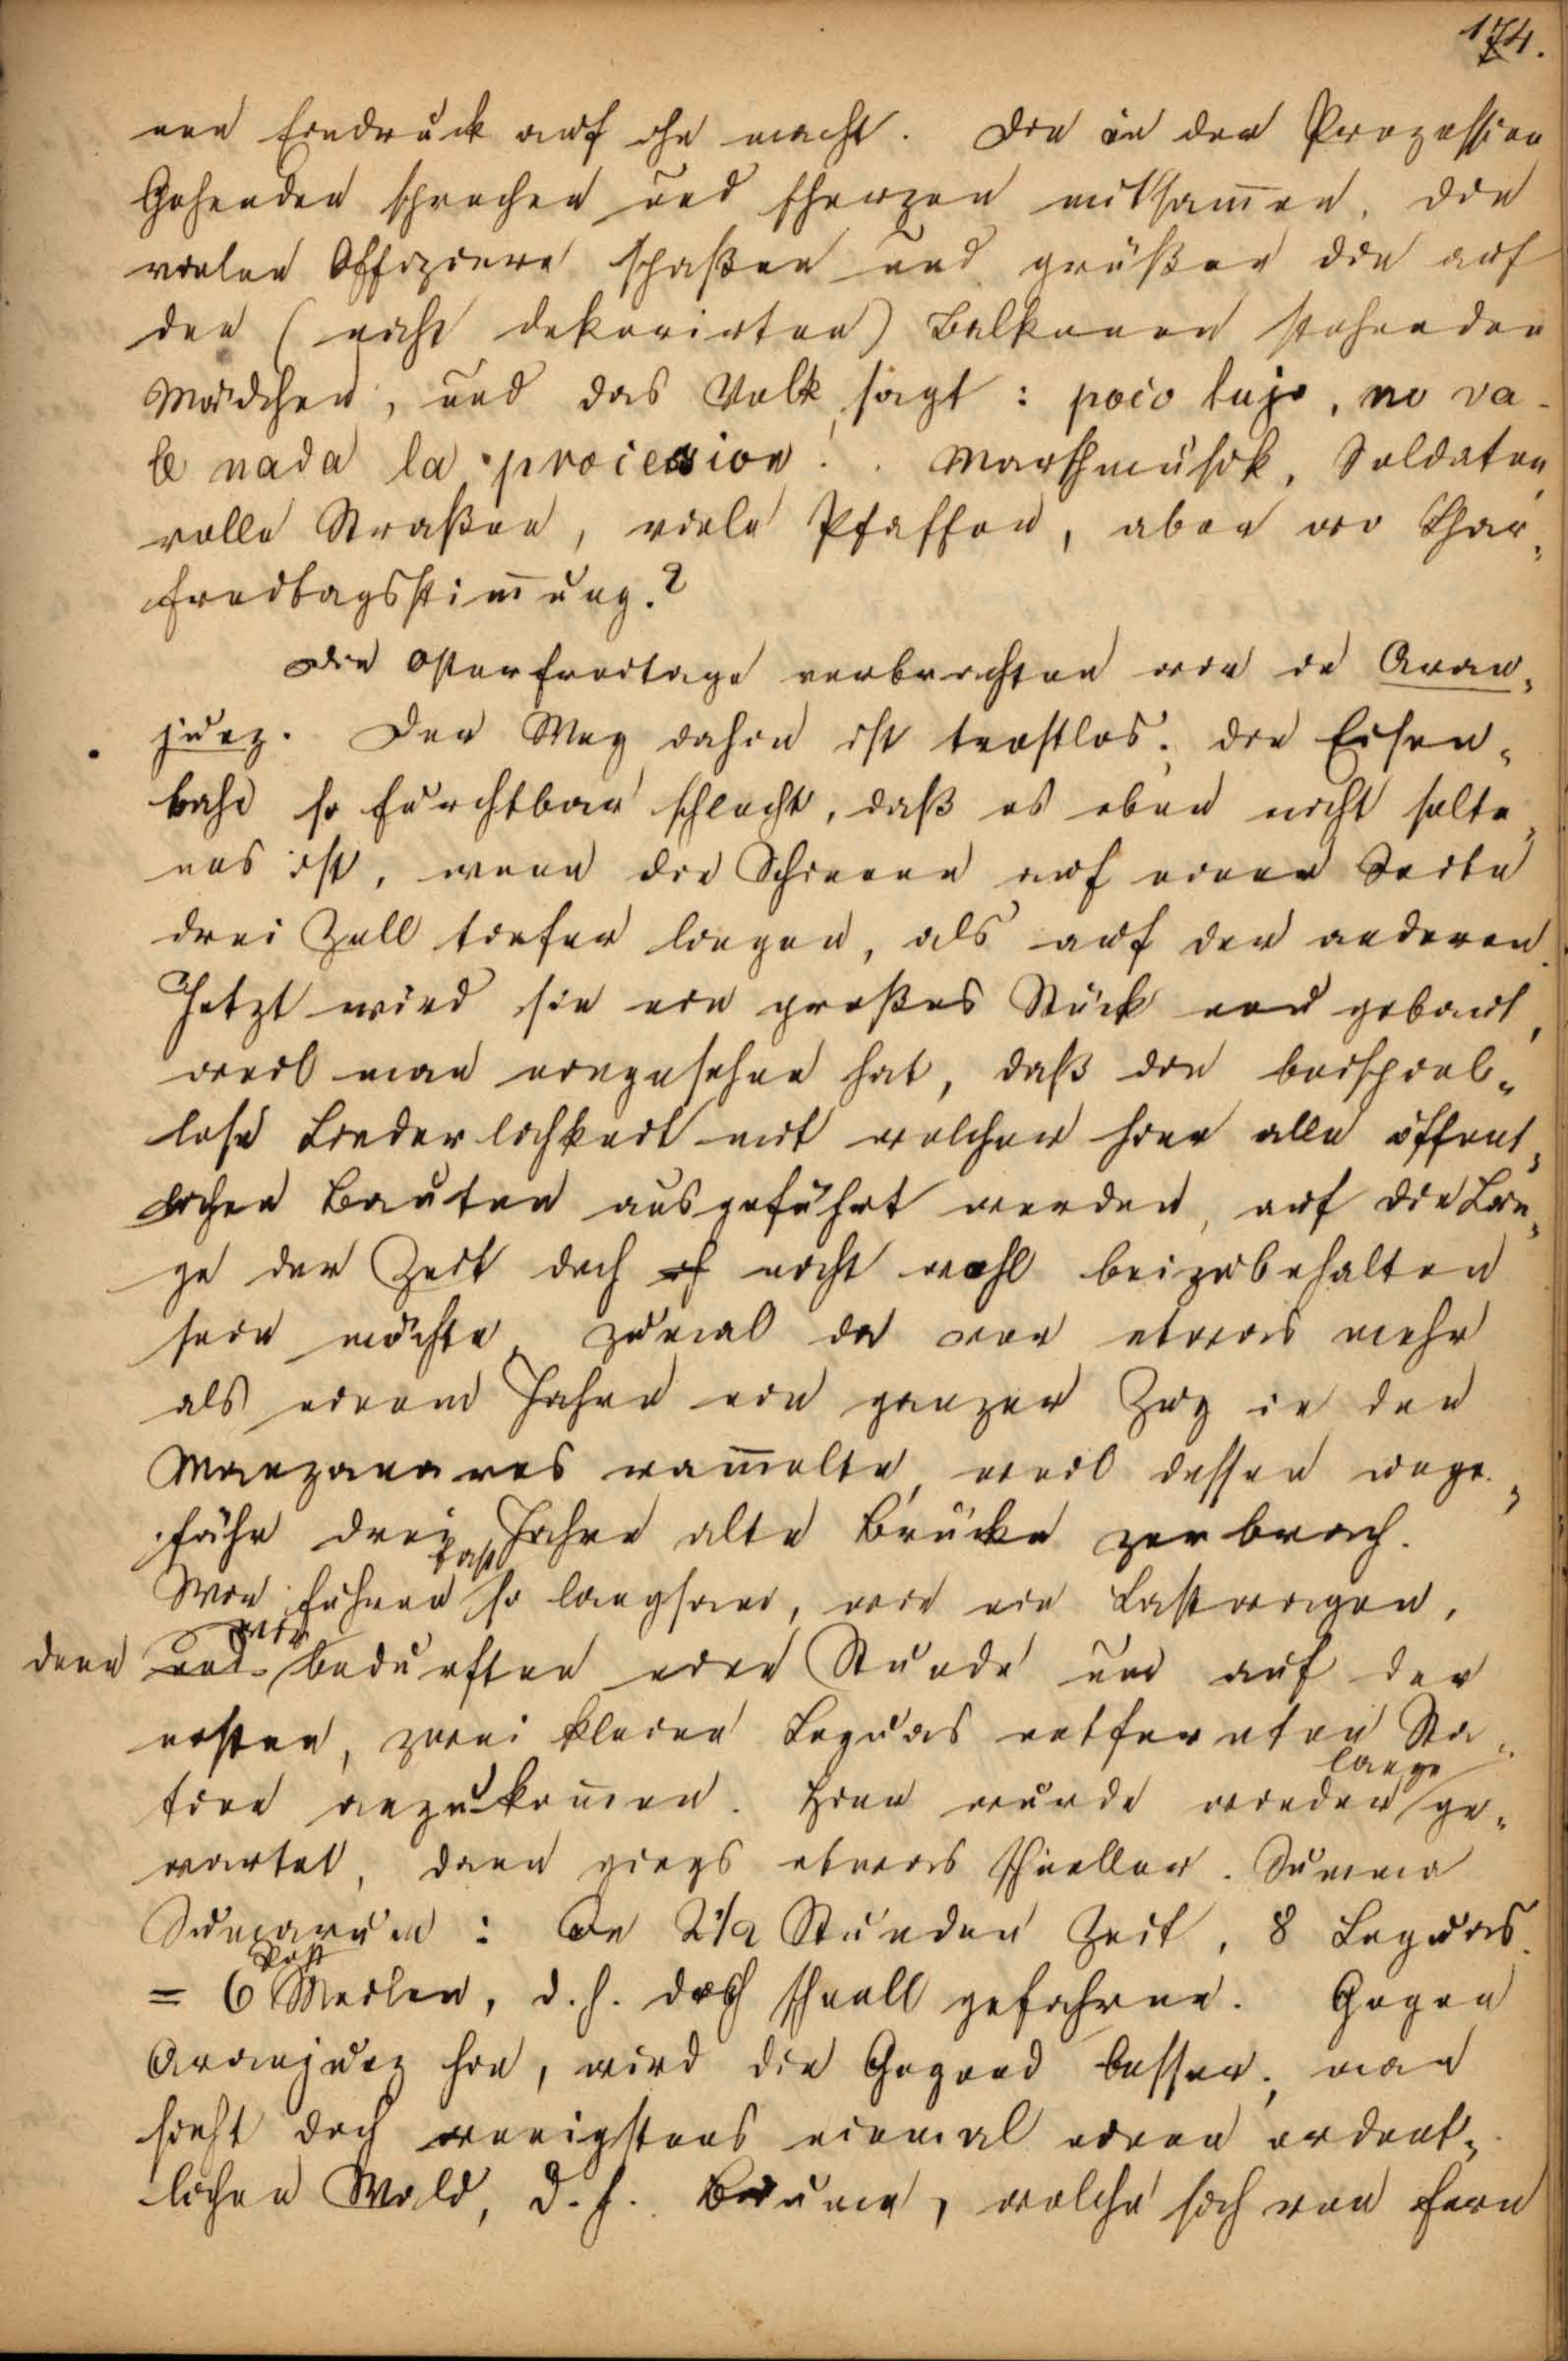 174.
nen Eindruck auf ihn macht. Die in der Prozession
Gehenden sprechen und scherzen mitsam̅en, die
vielen Offiziere spaßen und grüßen die auf
den (nicht dekorirten) Balkonen stehenden
Mädchen, und das Volk sagt: poco lujo, no va-
le nada la procesion! Marschmusik, Soldaten,
volle Straßen, viele Pfaffen, aber wo Char-
freitagsstim̅ung?
Die Osterfeiertage verbrachten wir in Aran-
juez. Der Weg dahin ist trostlos; die Eisen-
bahn so furchtbar schlecht, daß es eben nicht selte-
nes ist, wenn die Schienen auf einer Seite
drei Zoll tiefer liegen, als auf der anderen.
Jetzt wird sie ein großes Stück neu gebaut,
weil man eingesehen hat, daß die beispiel-
lose Liederlichkeit mit welcher hier alle öffent-
lichen Bauten ausgeführt werden, auf die Län-
ge der Zeit doch nicht wohl beizubehalten
sein möchte, zumal da vor etwas mehr
als einem Jahre ein ganzer Zug in den
Manzanares ram̅elte, weil dessen unge-
fähr drei Jahre alte Brücke zerbrach.
Wir fuhren fast so langsam, wie ein Lastwagen,
denn wir bedurften eine Stunde um auf der
ersten, zwei kleine Leguas entfernten Sta-
tion anzukom̅en. Hier wurde wieder lange ge-
wartet, dann giengs etwas schneller. Summa
Summarum: In 2 1/2 Stunden Zeit, 8 Leguas
= 6 Post Meilen, d.h. doch schnell gefahren. Gegen
Aranjuez hin, wird die Gegend besser; man
sieht doch wenigstens einmal einen ordent-
lichen Wald, d.h. Bäume, welche sich von fern